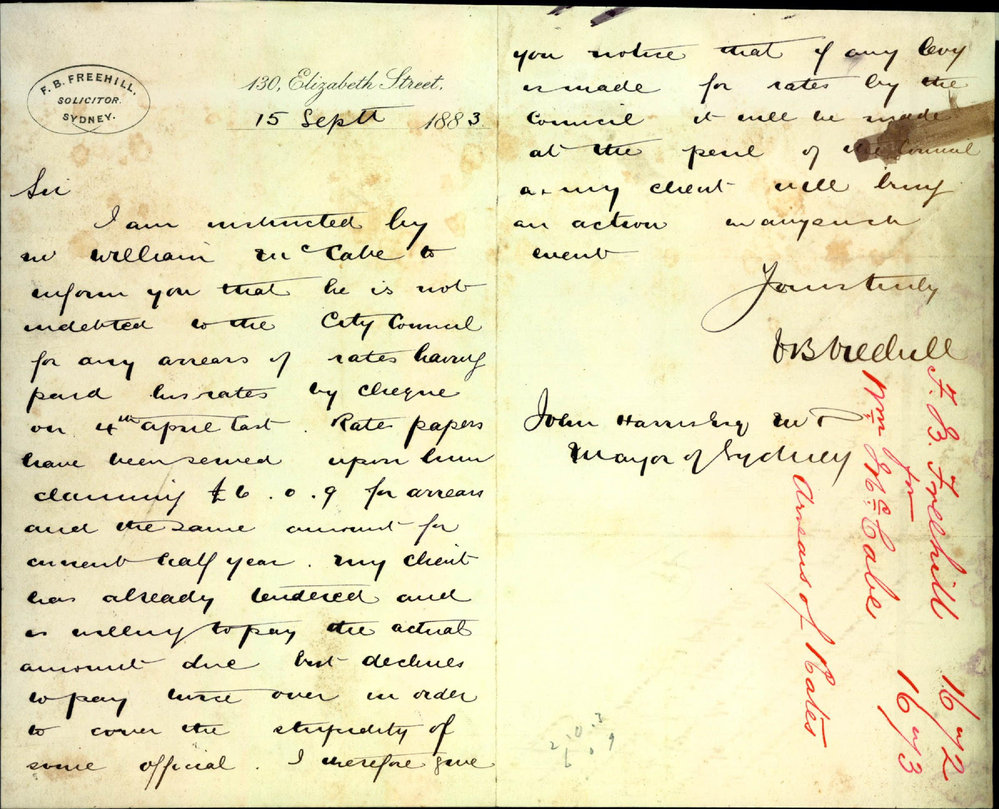 F. B. FREEHILL.
SOLICITOR.
SYDNEY.
130, Elizabeth Street,
15 Septt 1883.
Sir
I am instructed by
Mr William McCabe to
inform you that he is not
indebted to the City Council
for any arrears of rates having
paid his rates by cheque
on 4th April last. Rate papers
have been served upon him
claiming £6.0.9 for arrears
and the same amount for
current half year. My client
has already tendered and
is willing to pay the actual
amount due but declines
to pay twice over in order
to cover the stupidity of
some official. I therefore give
you notice that if any levy
is made for rates by the
Council it will be made
at the peril of the Council
as my client will bring
an action in any such
event
Yours truly
F B Freehill
John Harris Esq M P
Mayor of Sydney
F. B. Freehill
for
Wm McCabe
Arrears of Rates